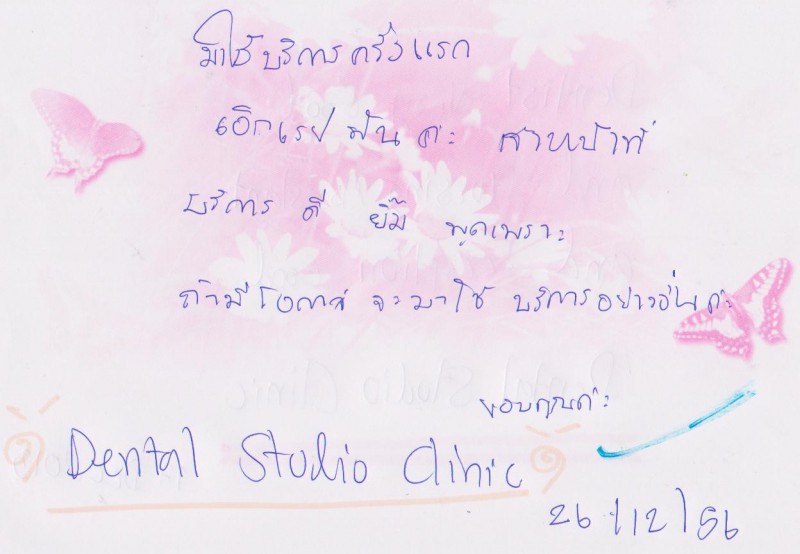 มาใช้บริการครั้งแรก
เอ๊กเรย์ ฟัน ค่ะ
บริการ ดี ยิ้ม พูดเพราะ
ถ้ามีโอกาส จะมาใช้ บริการอย่างอื่นค่ะ
ขอบคุณค่ะ
Dental Studio Clinic
26/12/56